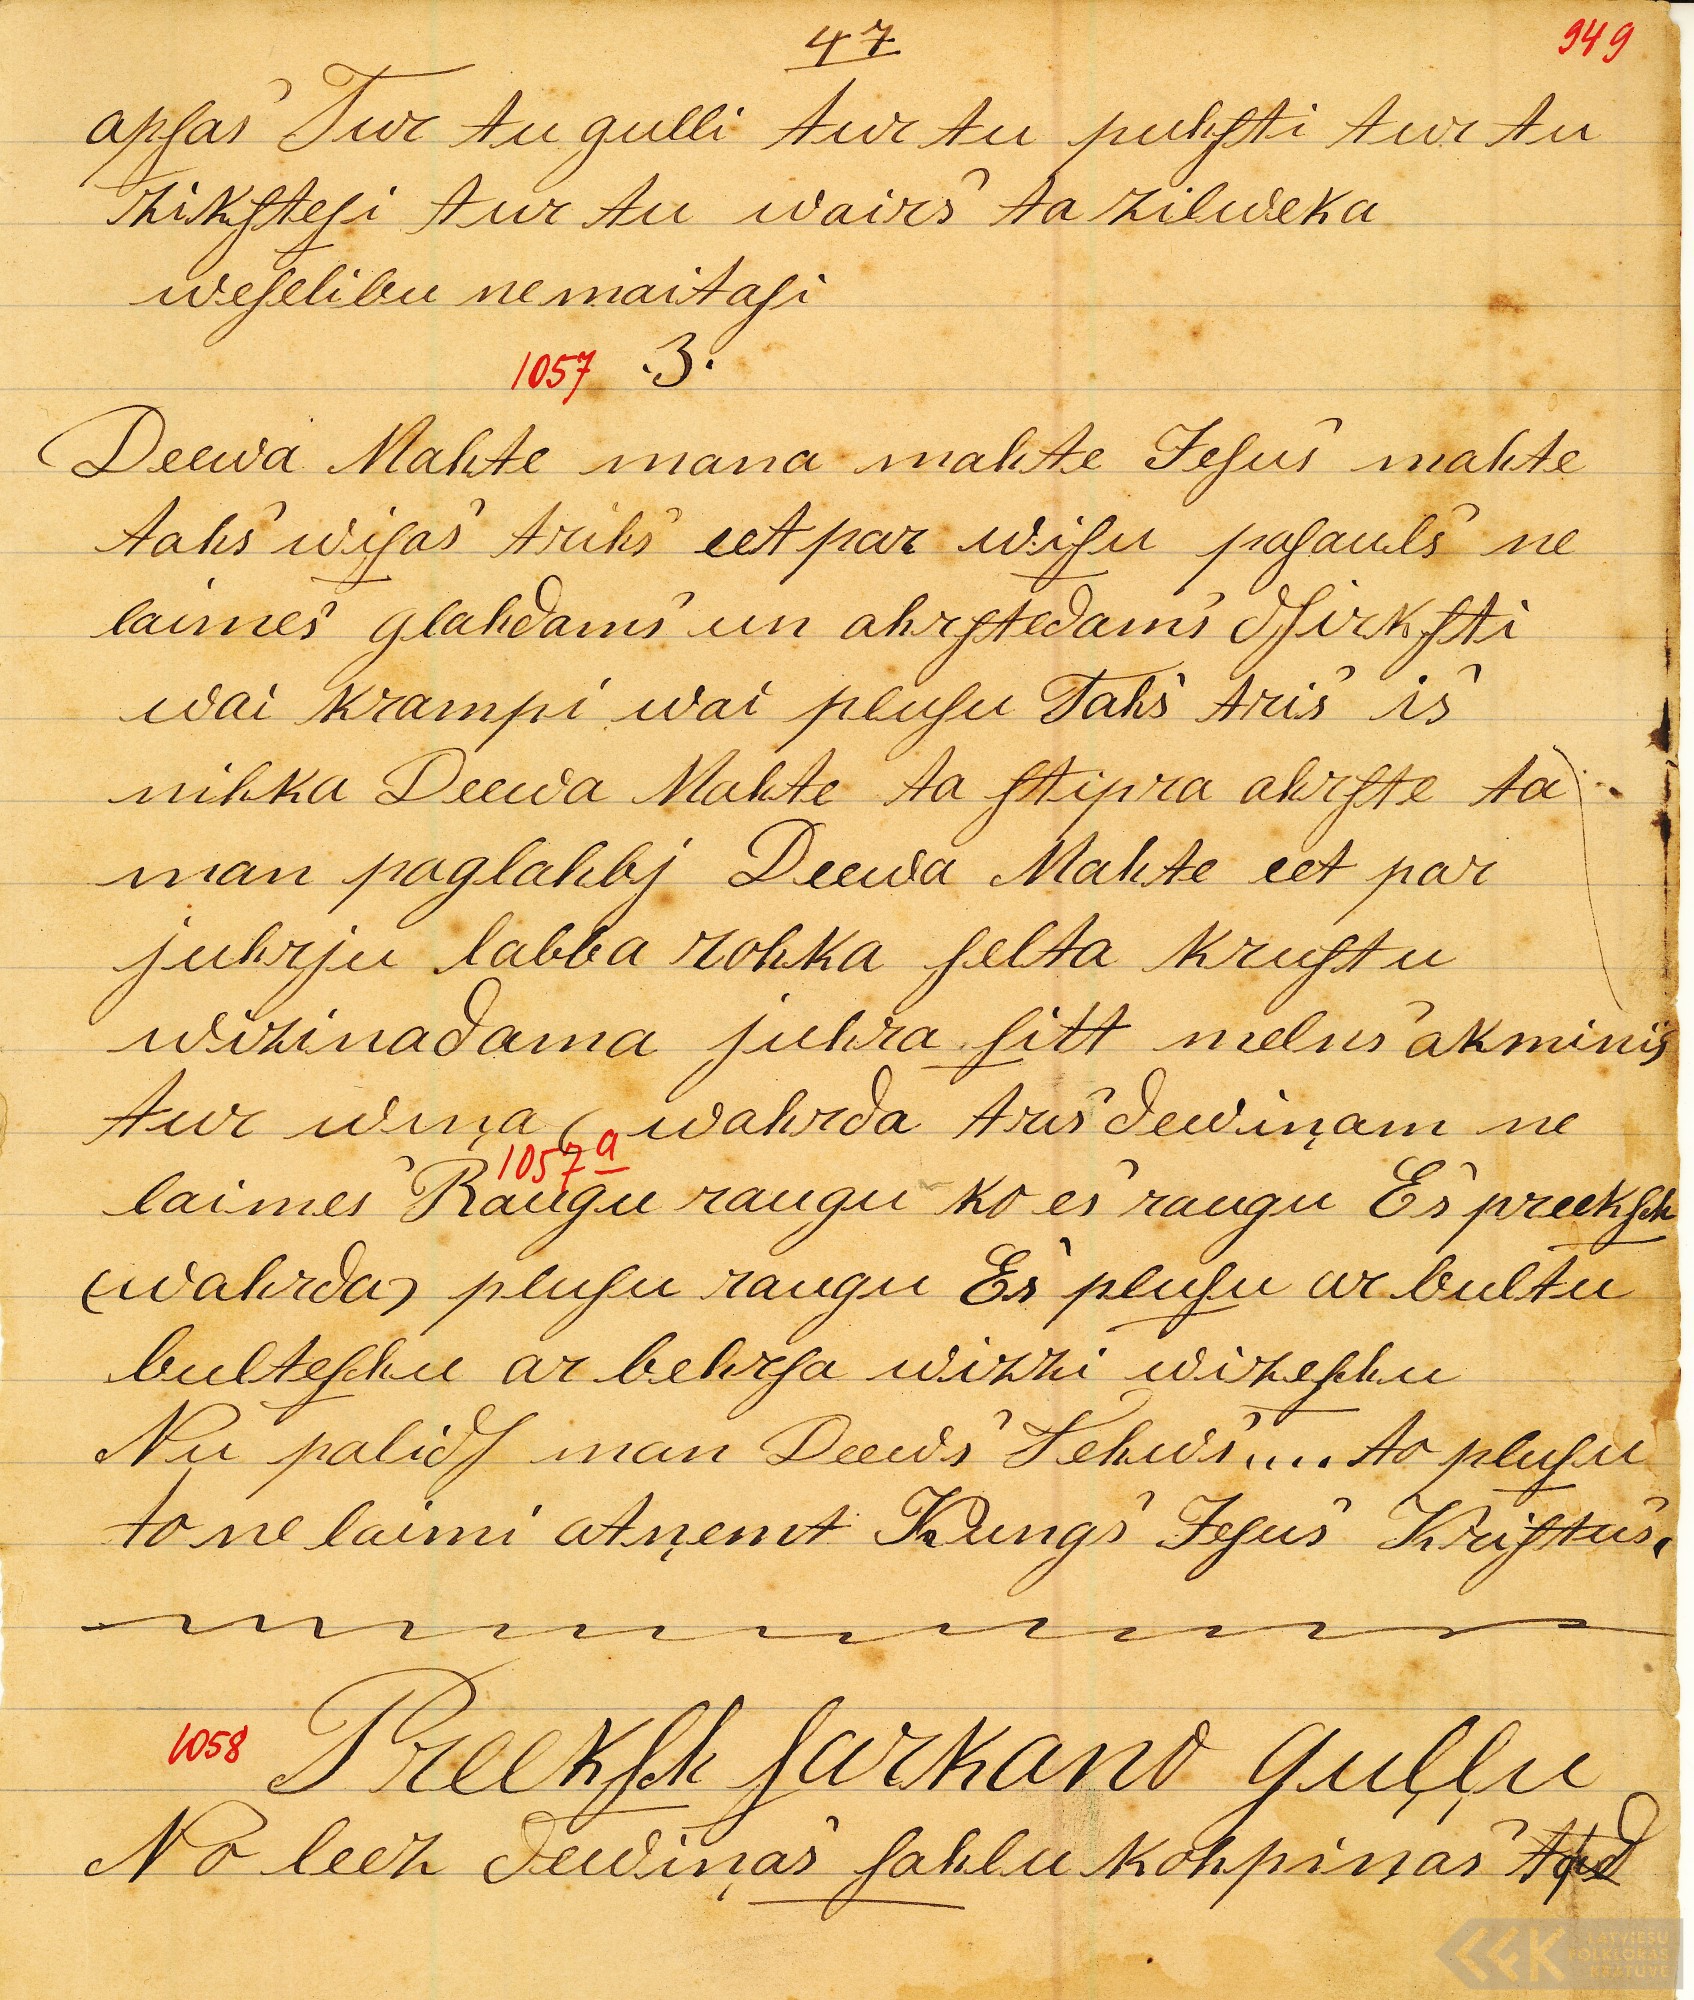 47
949
apſas Tur tu gulli tur tu puhſti tur tu
zikſteſi tur tu wairs ta zilweka
weſelibu ne maitaſi
1057 .3.
Deewa Mahte mana mahte Jeſus mahte
tahs wiſas trihs eet par wiſu paſauls ne
laimes glahdams un ahrſtedams dſirkſti
wai krampi wai pluſu Tahs tris is
nihka Deewa Mahte ta ſtipra ahrſte ta
man paglahbj Deewa Mahte eet par
juhrju labba rohka ſelta kruſtu
wizinadama juhra ſitt melns akminis
tur wiņa (wahrda tris dewiņam ne
1057 a
laimes Raugu raugu ko es raugu Es preekſch
(wahrda) pluſu raugu Es pluſu ar bultu
bulteſchu ar behrſa wizzi wizeſchu
Nu palidſ man Deews Tehws.... to pluſu
to ne laimi atņemt Kungs Jeſus Kriſtus.
1058 Preekſch ſarkano guļļu
No leez dewiņas ſahlu kohpiņas
LATVIEŠU
FOLKLORAS
KRĀTUVE